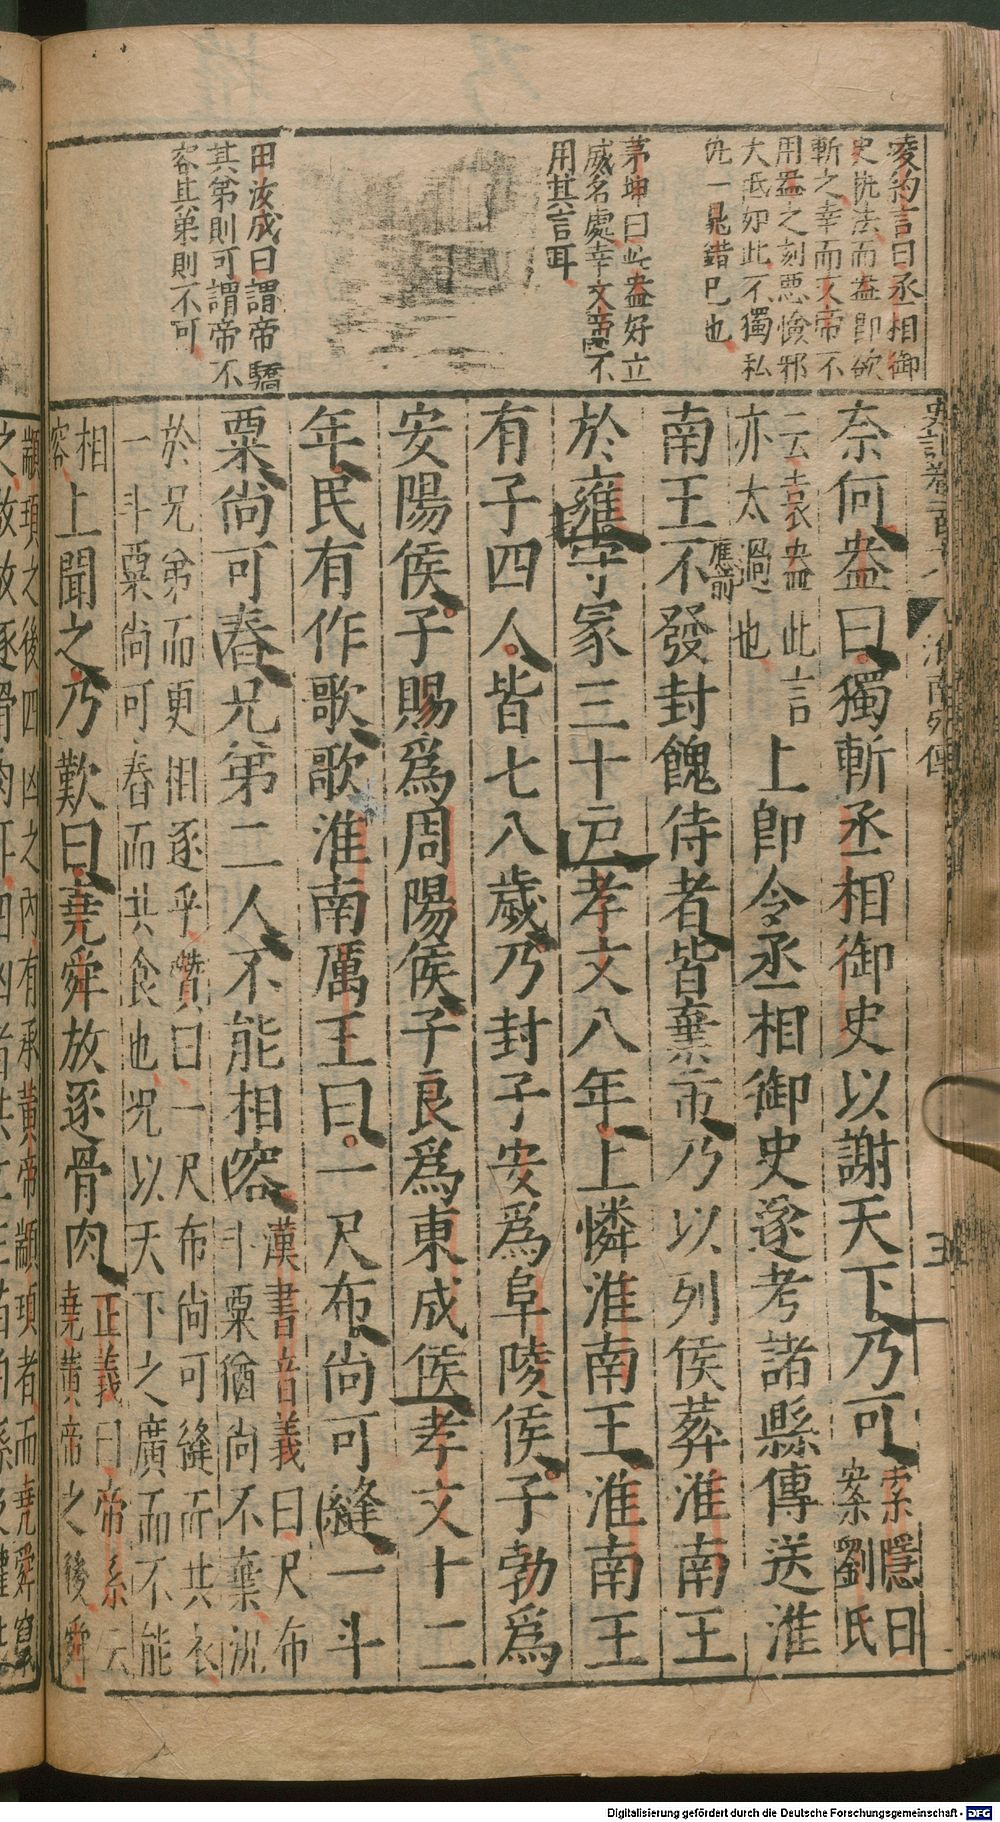 凌約言曰丞相御
史執法而盎即欲
斬之幸而文帝不
用盎之刻悪憸邪
大抵如此不獨私
仇一晁錯已也
茅坤曰此盎好立
威名處幸文帝不
用其言耳
田汝成曰謂帝驕
其弟則可謂帝不
容其弟則不可
奈何盎曰獨斬丞相御史以謝天下乃可索隱曰
案劉氏
云袁盎此言
亦太過也
上即令丞相御史逐考諸縣傳送淮
南王不發封餽侍者皆棄市乃以列侯葬淮南王
應前
於雍守冢三十戸孝文八年上憐淮南王淮南王
有子四人皆七八歲乃封子安爲阜陵侯子勃爲
安陽侯子賜爲周陽侯子良爲東成侯孝文十二
年民有作歌歌淮南厲王曰一尺布尚可縫一斗
粟尚可舂兄弟二人不能相容漢書音義曰尺布
斗粟猶尚不棄況
於兄弟而更相逐乎瓚曰一尺布尚可縫而共衣
一斗粟尚可舂而共食也况以天下之廣而不能
相
容
上聞之乃歎曰堯舜放逐骨肉正義曰帝系云
堯黃帝之後舜
顓頊之後四凶之內有承黃帝顓頊者而堯舜竄
之故放逐骨肉耳四凶者共工三苗伯鯀及讙兜
史記卷一百十八
淮南列傳
三
Digitalisierung gefördert durch die Deutsche Forschungsgemeinschaft - DFG